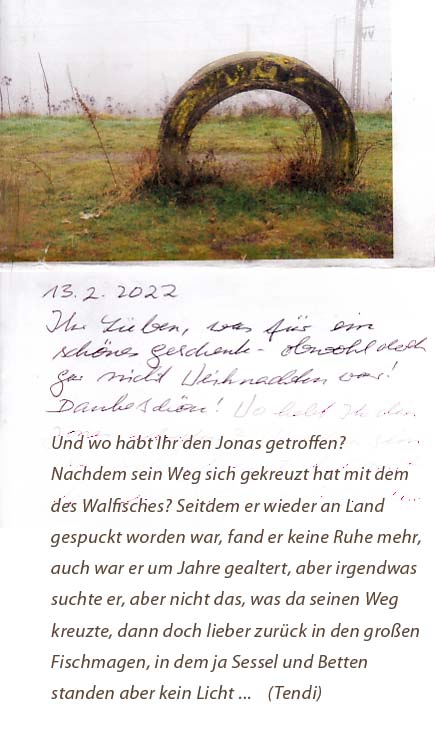 13.2.2022
Ihr Lieben, was für ein
schönes Geschenk - obwohl doch
gar nicht Weihnachten war!
Dankeschön! Wo habt Ihr den
Und wo habt Ihr den Jonas getroffen?
Nachdem sein Weg sich gekreuzt hat mit dem
des Walfisches? Seitdem er wieder an Land
gespuckt worden war, fand er keine Ruhe mehr,
auch war er um Jahre gealtert, aber irgendwas
suchte er, aber nicht das, was da seinen Weg
kreuzte, dann doch lieber zurück in den großen
Fischmagen, in dem ja Sessel und Betten
standen aber kein Licht ... (Tendi)